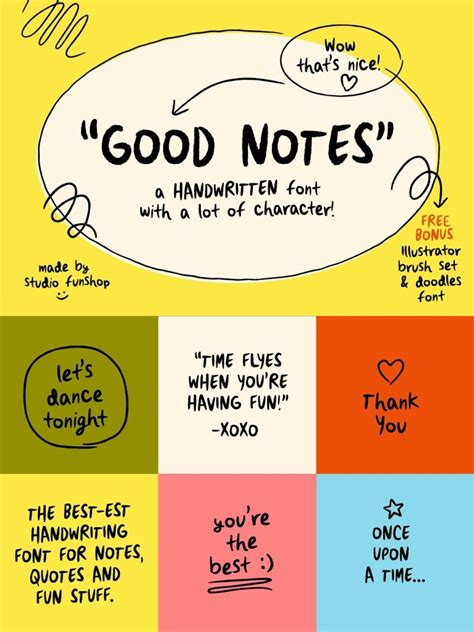 Wow
that's nice!
"GOOD NOTES"
a HANDWRITTEN font
with a lot of character!
made by
Studio Funshop
FREE
BONUS
Illustrator
brush set
& doodles
font
let's
dance
tonight
"TIME FLYES
WHEN YOU'RE
HAVING FUN!"
-XOXO
Thank
You
THE BEST-EST
HANDWRITING
FONT FOR NOTES,
QUOTES AND
FUN STUFF.
you're
the
best :)
ONCE
UPON
A TIME...